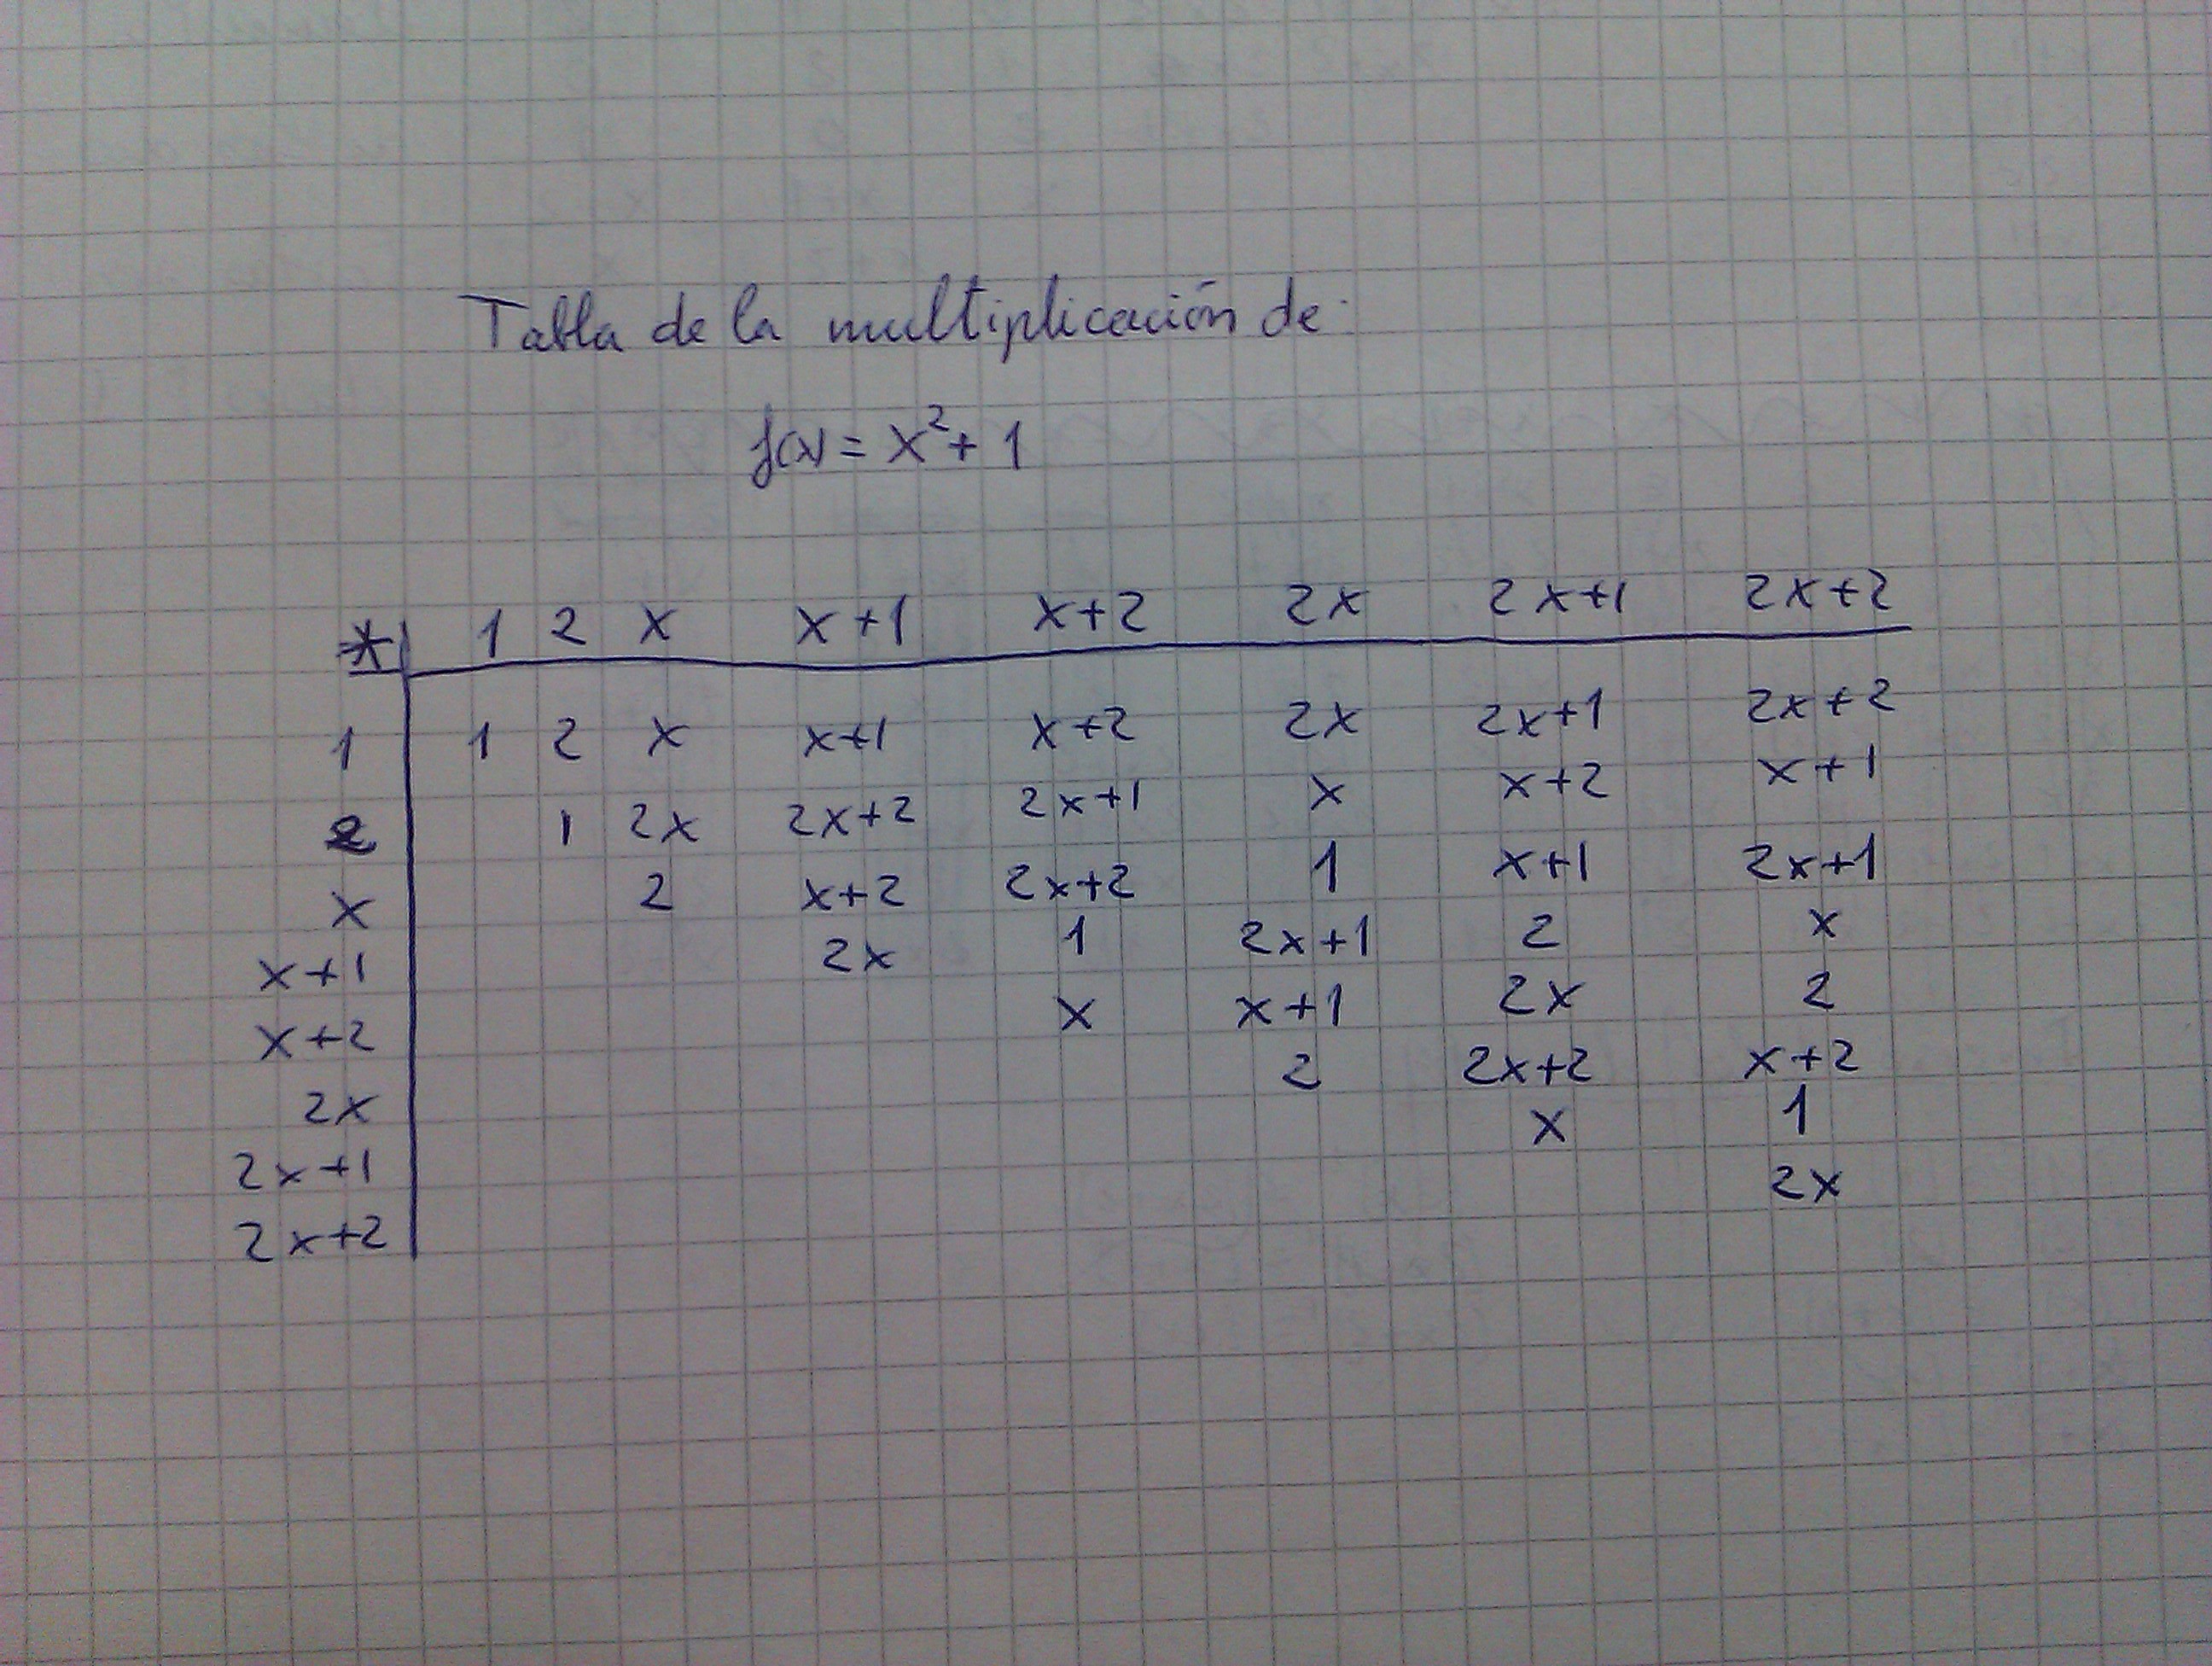 Tabla de la multiplicación de:
f(x) = x²+ 1
* 1 2 x x+1 x+2 2x 2x+1 2x+2
1 1 2 x x+1 x+2 2x 2x+1 2x+2
2 1 2x 2x+2 2x+1 x x+2 x+1
x 2 x+2 2x+2 1 x+1 2x+1
x+1 2x 1 2x+1 2 x
x+2 x x+1 2x 2
2x 2 2x+2 x+2
2x+1 x 1
2x+2 2x